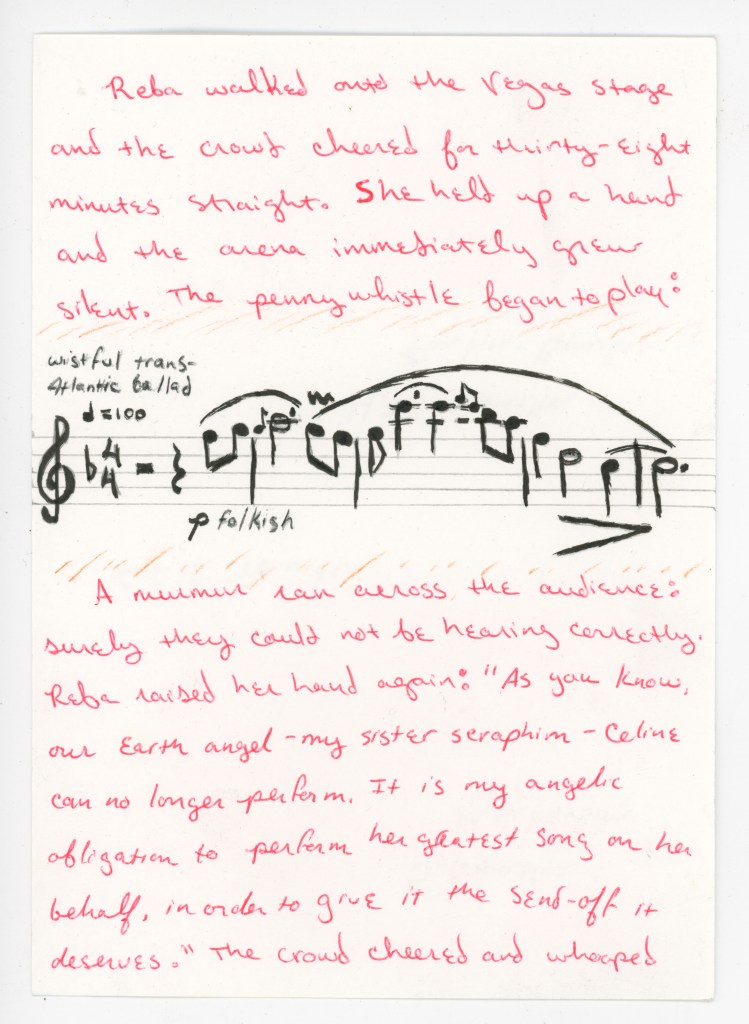 Reba walked onto the Vegas stage
and the crowd cheered for thirty-eight
minutes straight. She held up a hand
and the arena immediately grew
silent. The pennywhistle began to play:
wistful trans-
Atlantic ballad
♩=100
4
4
p folkish
A murmur ran across the audience:
surely they could not be hearing correctly.
Reba raised her hand again: "As you know,
our Earth angel - my sister seraphim - Celine
can no longer perform. It is my angelic
obligation to perform her greatest song on her
behalf, in order to give it the send-off it
deserves." The crowd cheered and whooped